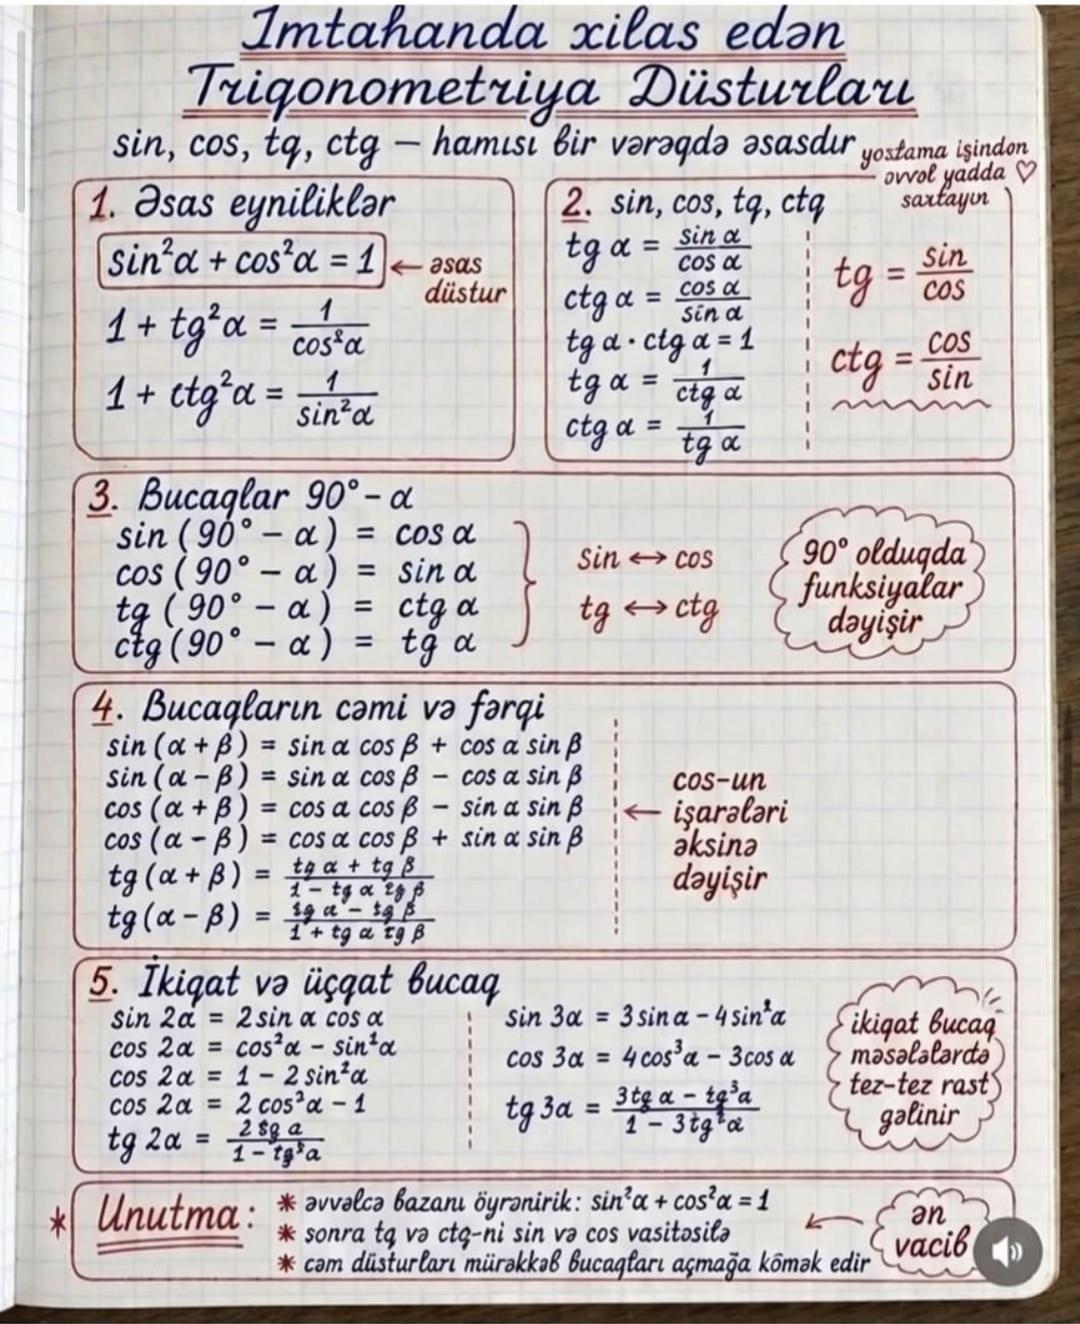 Imtahanda xilas edən
Trigonometriya Düsturları
sin, cos, tq, ctg — hamısı bir vərəqdə əsasdır
yostama işindən
əvvəl yadda ♡
saxtayın
1. Əsas eyniliklər
sin²α + cos²α = 1
← əsas
düstur
1 + tg²α = 1/cos²α
1 + ctg²α = 1/sin²α
2. sin, cos, tq, ctq
tg α = sin α/cos α
ctg α = cos α/sin α
tg α · ctg α = 1
tg α = 1/ctg α
ctg α = 1/tg α
tg = sin/cos
ctg = cos/sin
3. Bucaqlar 90° - α
sin (90° - α) = cos α
cos (90° - α) = sin α
tg (90° - α) = ctg α
ctg (90° - α) = tg α
sin ↔ cos
tg ↔ ctg
90° olduqda
funksiyalar
dəyişir
4. Bucaqların cəmi və fərqi
sin (α + β) = sin α cos β + cos α sin β
sin (α - β) = sin α cos β - cos α sin β
cos (α + β) = cos α cos β - sin α sin β
cos (α - β) = cos α cos β + sin α sin β
tg (α + β) = tg α + tg β/1 - tg α tg β
tg (α - β) = tg α - tg β/1 + tg α tg β
← cos-un
işarələri
əksinə
dəyişir
5. İkiqat və üçqat bucaq
sin 2α = 2 sin α cos α
cos 2α = cos²α - sin²α
cos 2α = 1 - 2 sin²α
cos 2α = 2 cos²α - 1
tg 2α = 2 tg α/1 - tg²α
sin 3α = 3 sin α - 4 sin³α
cos 3α = 4 cos³α - 3 cos α
tg 3α = 3tg α - tg³α/1 - 3tg²α
ikiqat bucaq
məsələlərdə
tez-tez rast
gəlinir
* Unutma:
* əvvəlcə bazanı öyrənirik: sin²α + cos²α = 1
* sonra tq və ctq-ni sin və cos vasitəsilə
* cəm düsturları mürəkkəb bucaqları açmağa kömək edir
ən
vacib